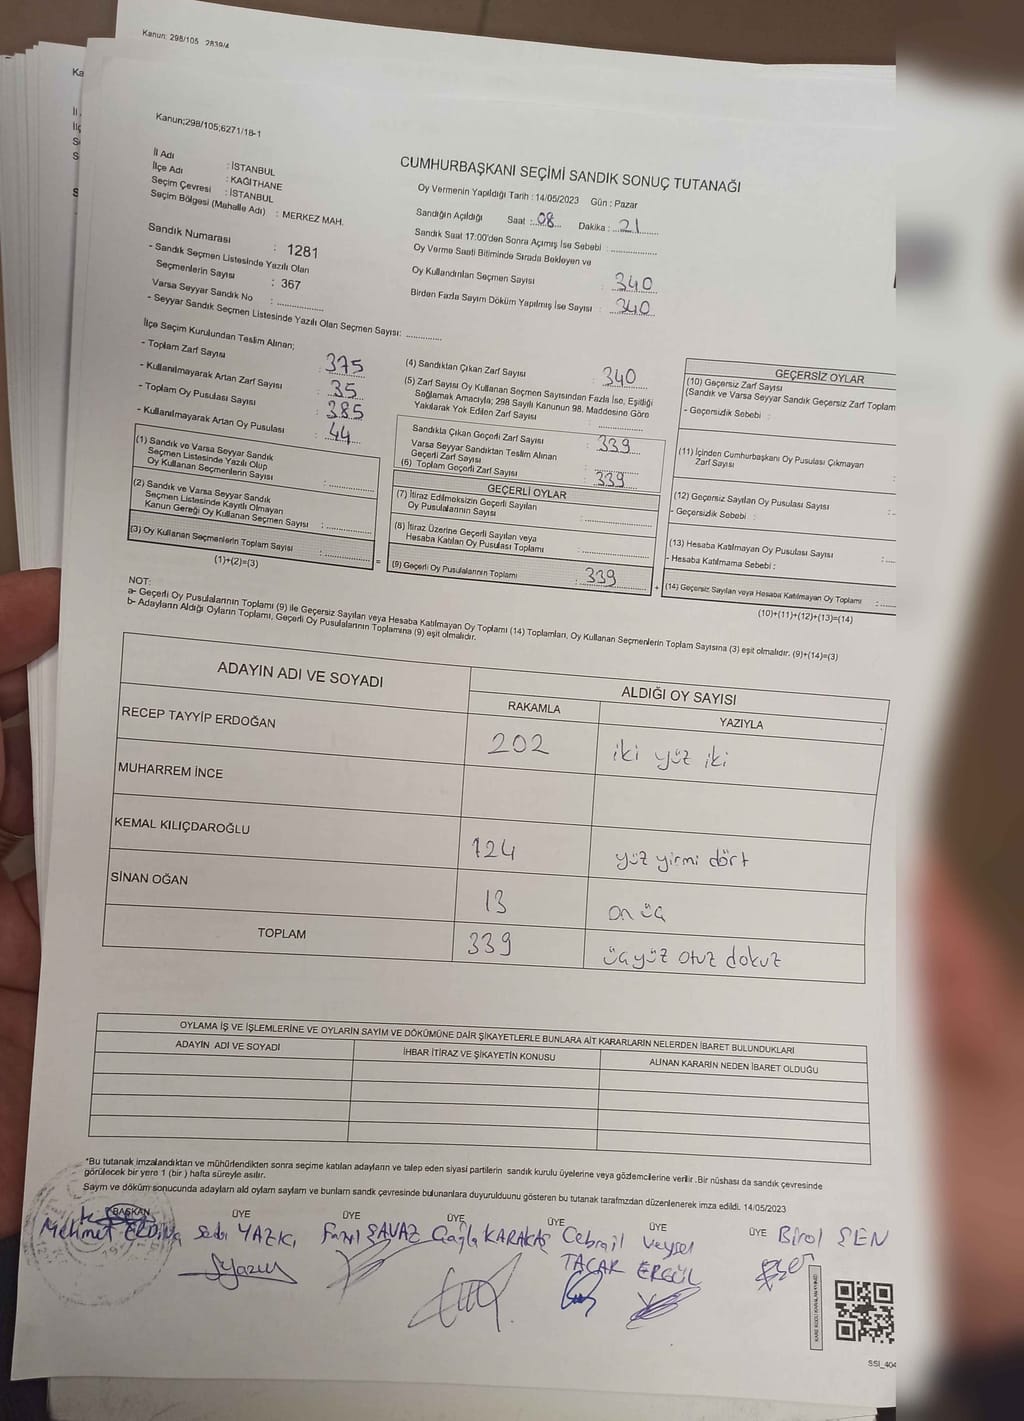 Kanun: 298/105 2839/4
Kanun;298/105;6271/18-1
CUMHURBAŞKANI SEÇİMİ SANDIK SONUÇ TUTANAĞI
İl Adı : İSTANBUL
İlçe Adı : KAĞITHANE
Seçim Çevresi : İSTANBUL
Seçim Bölgesi (Mahalle Adı) : MERKEZ MAH.
Sandık Numarası : 1281
- Sandık Seçmen Listesinde Yazılı Olan
Seçmenlerin Sayısı : 367
Varsa Seyyar Sandık No : ..............
- Seyyar Sandık Seçmen Listesinde Yazılı Olan Seçmen Sayısı: ..............
Oy Vermenin Yapıldığı Tarih : 14/05/2023 Gün : Pazar
Sandığın Açıldığı Saat : 08 Dakika : 21
Sandık Saat 17:00'den Sonra Açımış İse Sebebi : ..................
Oy Verme Saati Bitiminde Sırada Bekleyen ve
Oy Kullandırılan Seçmen Sayısı : 340
Birden Fazla Sayım Döküm Yapılmış İse Sayısı : 340
İlçe Seçim Kurulundan Teslim Alınan;
- Toplam Zarf Sayısı : 375
- Kullanılmayarak Artan Zarf Sayısı : 35
- Toplam Oy Pusulası Sayısı : 385
- Kullanılmayarak Artan Oy Pusulası : 44
(1) Sandık ve Varsa Seyyar Sandık
Seçmen Listesinde Yazılı Olup
Oy Kullanan Seçmenlerin Sayısı : ..............
(2) Sandık ve Varsa Seyyar Sandık
Seçmen Listesinde Kayıtlı Olmayan
Kanun Gereği Oy Kullanan Seçmen Sayısı : ..............
(3) Oy Kullanan Seçmenlerin Toplam Sayısı : ..............
(1)+(2)=(3)
=
(4) Sandıktan Çıkan Zarf Sayısı : 340
(5) Zarf Sayısı Oy Kullanan Seçmen Sayısından Fazla İse, Eşitliği
Sağlamak Amacıyla; 298 Sayılı Kanunun 98. Maddesine Göre
Yakılarak Yok Edilen Zarf Sayısı : ..............
Sandıkla Çıkan Geçerli Zarf Sayısı : 339
Varsa Seyyar Sandıktan Teslim Alınan
Geçerli Zarf Sayısı : ..............
(6) Toplam Geçerli Zarf Sayısı : 339
GEÇERLİ OYLAR
(7) İtiraz Edilmeksizin Geçerli Sayılan
Oy Pusulalarının Sayısı : ..............
(8) İtiraz Üzerine Geçerli Sayılan veya
Hesaba Katılan Oy Pusulası Toplamı : ..............
(9) Geçerli Oy Pusulalarının Toplamı : 339
+
GEÇERSİZ OYLAR
(10) Geçersiz Zarf Sayısı
(Sandık ve Varsa Seyyar Sandık Geçersiz Zarf Toplam
- Geçersizlik Sebebi :
(11) İçinden Cumhurbaşkanı Oy Pusulası Çıkmayan
Zarf Sayısı :
(12) Geçersiz Sayılan Oy Pusulası Sayısı :
- Geçersizlik Sebebi :
(13) Hesaba Katılmayan Oy Pusulası Sayısı :
- Hesaba Katılmama Sebebi :
(14) Geçersiz Sayılan veya Hesaba Katılmayan Oy Toplamı :
(10)+(11)+(12)+(13)=(14)
NOT:
a- Geçerli Oy Pusulalarının Toplamı (9) ile Geçersiz Sayılan veya Hesaba Katılmayan Oy Toplamı (14) Toplamları, Oy Kullanan Seçmenlerin Toplam Sayısına (3) eşit olmalıdır. (9)+(14)=(3)
b- Adayların Aldığı Oyların Toplamı, Geçerli Oy Pusulalarının Toplamına (9) eşit olmalıdır.
ADAYIN ADI VE SOYADI ALDIĞI OY SAYISI
RAKAMLA YAZIYLA
RECEP TAYYİP ERDOĞAN 202 iki yüz iki
MUHARREM İNCE
KEMAL KILIÇDAROĞLU 124 yüz yirmi dört
SİNAN OĞAN 13 on üç
TOPLAM 339 üçyüz otuz dokuz
OYLAMA İŞ VE İŞLEMLERİNE VE OYLARIN SAYIM VE DÖKÜMÜNE DAİR ŞİKAYETLERLE BUNLARA AİT KARARLARIN NELERDEN İBARET BULUNDUKLARI
ADAYIN ADI VE SOYADI İHBAR İTİRAZ VE ŞİKAYETİN KONUSU ALINAN KARARIN NEDEN İBARET OLDUĞU
*Bu tutanak imzalandıktan ve mühürlendikten sonra seçime katılan adayların ve talep eden siyasi partilerin sandık kurulu üyelerine veya gözlemcilerine verilir .Bir nüshası da sandık çevresinde
görülecek bir yere 1 (bir ) hafta süreyle asılır.
Sayım ve döküm sonucunda adayların ald oyların sayların ve bunların sandık çevresinde bulunanlara duyurulduunu gösteren bu tutanak tarafmzdan düzenlenerek imza edildi. 14/05/2023
BAŞKAN ÜYE ÜYE ÜYE ÜYE ÜYE ÜYE
Mehmet Seda YAZICI ŞAVAZ Çağla KARAKAŞ Cebrail TAÇAR Veysel ERGÜL Birol ŞEN
SSI_404